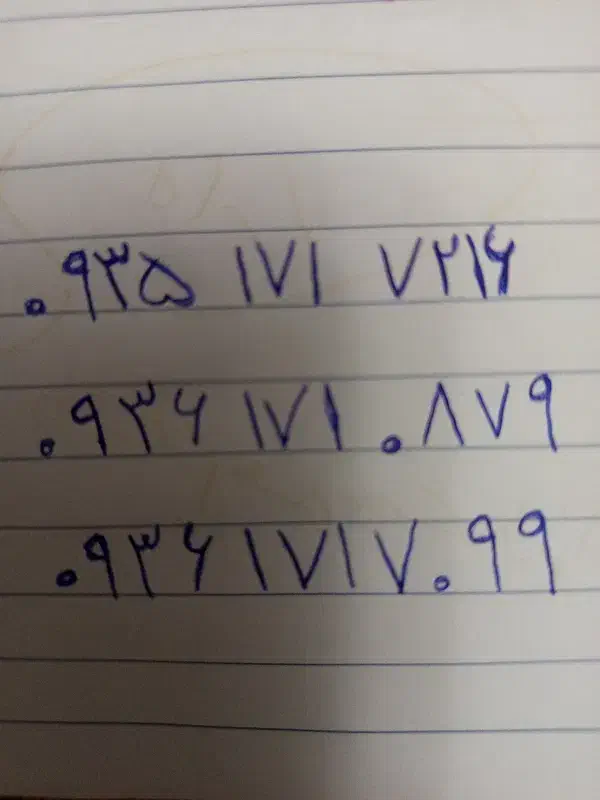 ۰۹۳۵ ۱۷۱ ۷۲۱۶
۰۹۳۶ ۱۷۱ ۰۸۷۹
۰۹۳۶ ۱۷۱۷۰۹۹